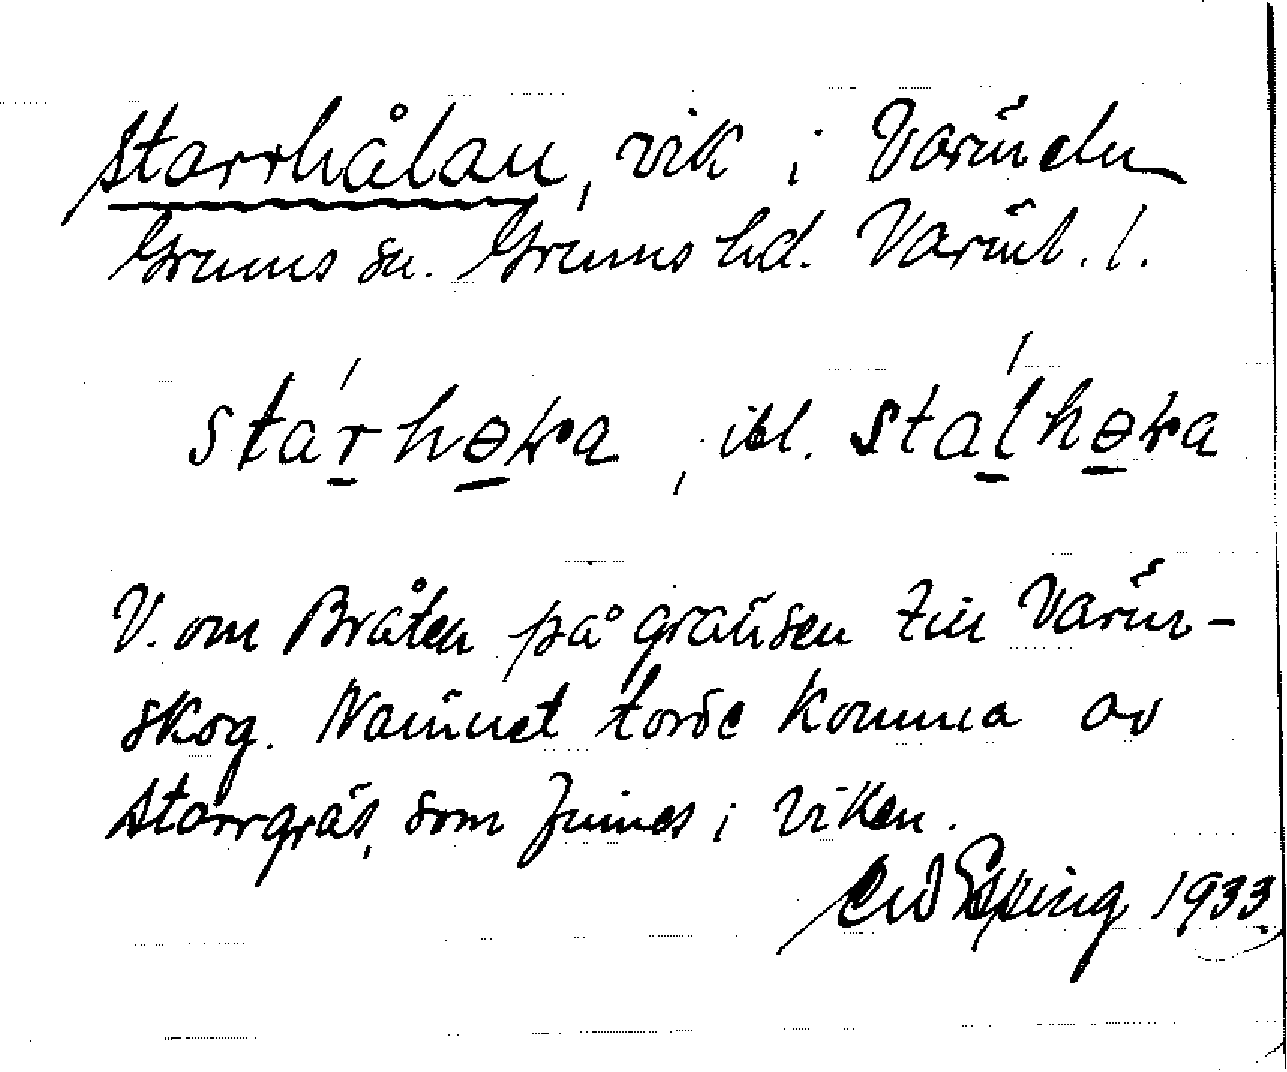 Starrhålan, vik i Värmeln
Grums sn. Grums hd. Värml. l.
stárhɵɽa, ibl. stálhɵɽa
V. om Bråten på gränsen till Värm-
skog. Namnet torde komma av
starrgräs, som finnes i viken.
1933